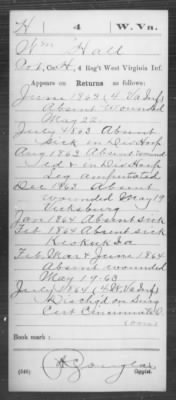 H | 4 | W. Va.
Wm Hall
Co. I, Cat H, 4 Reg't West Virginia Inf.
Appears on Returns as follows:
June 1863 (4. Va Inf)
Absent Wounded
May 22.
July 1863 Absent
sick in Div Hosp
Aug 1863 Absent wound
ed & in Div Hosp
Leg amputated
Dec 1863 Absent
wounded May 19
Vicksburg
Jan 1864 Absent sick
Feb 1864 Absent sick
Keokuk Ia
Feb. Mar & June 1864
Absent wounded
May 19-63
July 1864 (4. W. Va Inf)
Disch'gd on Surg
Cert Cincinnati O.
Book mark:
(546)
Copyist.